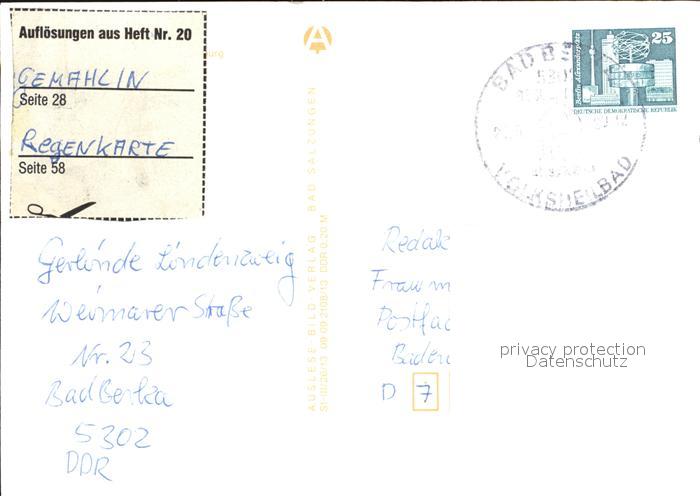 Auflösungen aus Heft Nr. 20
GEMAHLIN
Seite 28
REGENKARTE
Seite 58
urg
A
AUSLESE-BILD-VERLAG BAD SALZUNGEN
DDR 0,20 M
BAD BE
VOLKSHEILBAD
25
Berlin, Alexanderplatz
DEUTSCHE DEMOKRATISCHE REPUBLIK
Gerlinde Lindenzweig
Weimarer Straße
Nr. 23
Bad Berka
5302
DDR
Redak
Frau m
Postfac
Baden
D 7
privacy protection
Datenschutz